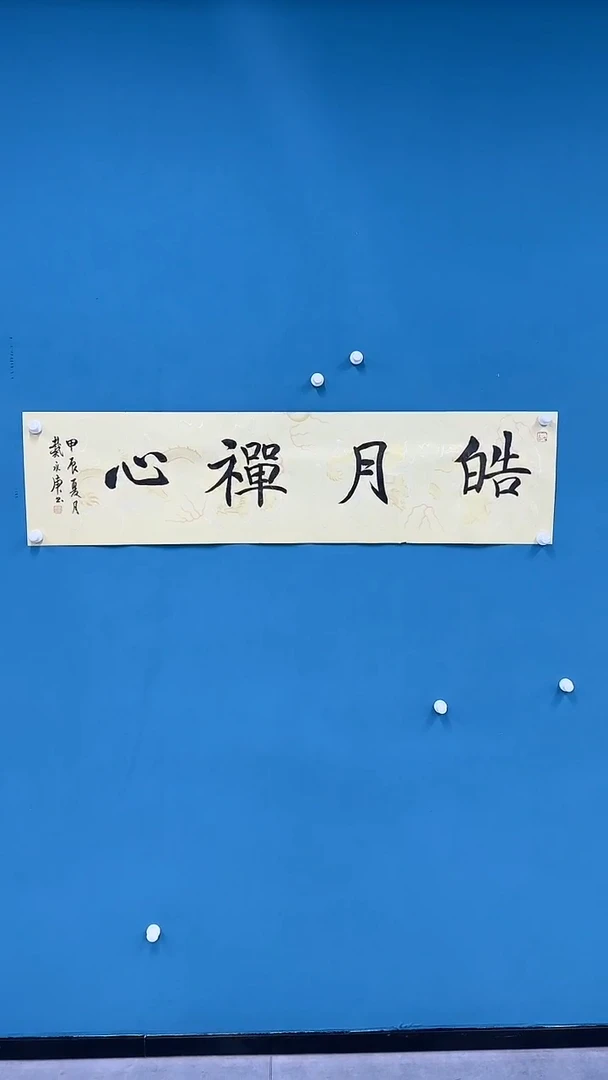 皓月禪心
甲辰夏月
戴永康书